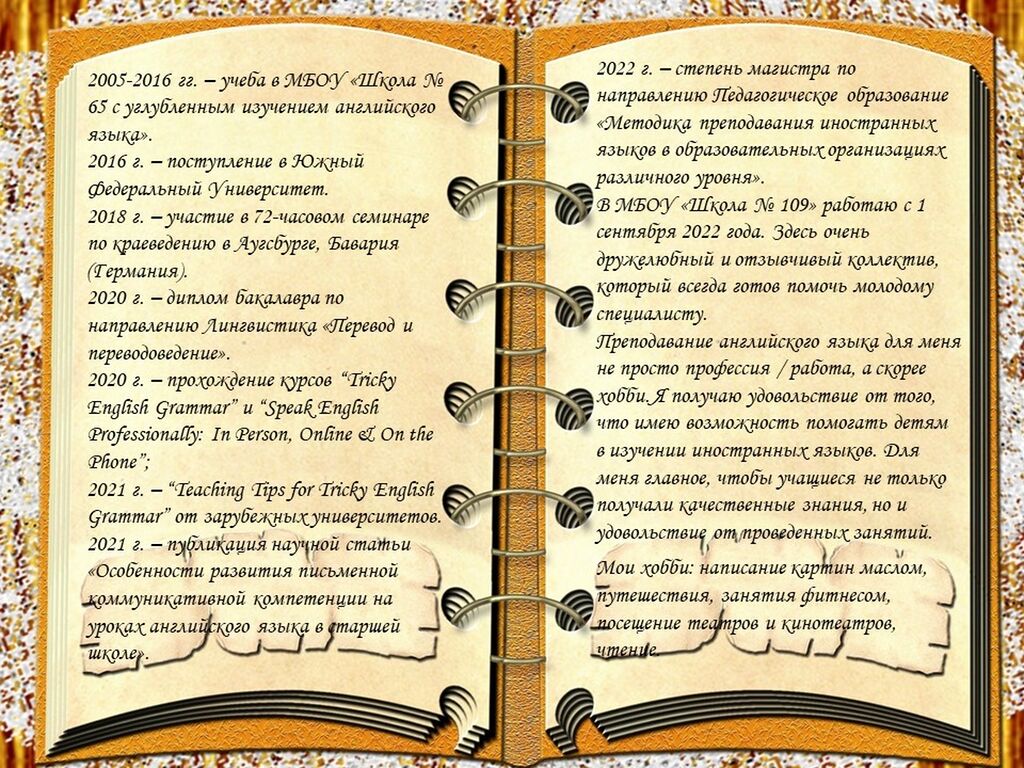 2005-2016 гг. – учеба в МБОУ «Школа №
65 с углубленным изучением английского
языка».
2016 г. – поступление в Южный
Федеральный Университет.
2018 г. – участие в 72-часовом семинаре
по краеведению в Аугсбурге, Бавария
(Германия).
2020 г. – диплом бакалавра по
направлению Лингвистика «Перевод и
переводоведение».
2020 г. – прохождение курсов “Tricky
English Grammar” и “Speak English
Professionally: In Person, Online & On the
Phone”;
2021 г. – “Teaching Tips for Tricky English
Grammar” от зарубежных университетов.
2021 г. – публикация научной статьи
«Особенности развития письменной
коммуникативной компетенции на
уроках английского языка в старшей
школе».
2022 г. – степень магистра по
направлению Педагогическое образование
«Методика преподавания иностранных
языков в образовательных организациях
различного уровня».
В МБОУ «Школа № 109» работаю с 1
сентября 2022 года. Здесь очень
дружелюбный и отзывчивый коллектив,
который всегда готов помочь молодому
специалисту.
Преподавание английского языка для меня
не просто профессия / работа, а скорее
хобби.Я получаю удовольствие от того,
что имею возможность помогать детям
в изучении иностранных языков. Для
меня главное, чтобы учащиеся не только
получали качественные знания, но и
удовольствие от проведенных занятий.
Мои хобби: написание картин маслом,
путешествия, занятия фитнесом,
посещение театров и кинотеатров,
чтение.